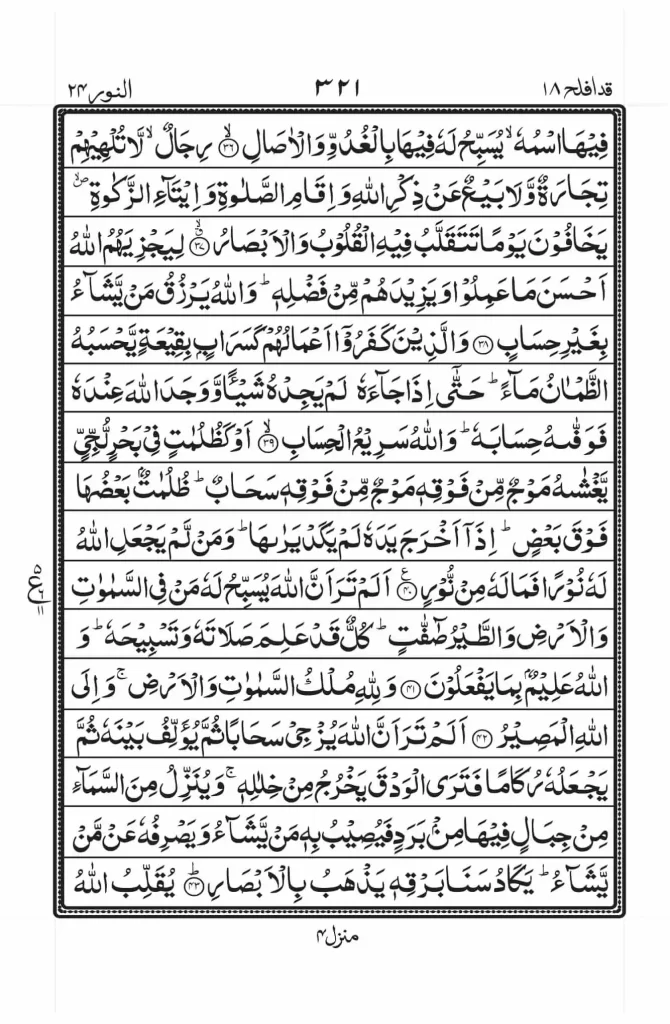 قدافلح ۱۸
۳۲۱
النور ۲۴
فِيۡهَا اسۡمُهٗ ۙ يُسَبِّحُ لَهٗ فِيۡهَا بِالۡغُدُوِّ وَالۡاٰصَالِ ۙ‏ ﴿۳۶﴾ رِجَالٌ ۙ لَّا تُلۡهِيۡهِمۡ
تِجَارَةٌ وَّلَا بَيۡعٌ عَنۡ ذِكۡرِ اللّٰهِ وَاِقَامِ الصَّلٰوةِ وَ اِيۡتَآءِ الزَّكٰوةِ ۙ
يَخَافُوۡنَ يَوۡمًا تَتَقَلَّبُ فِيۡهِ الۡقُلُوۡبُ وَالۡاَبۡصَارُ ۙ‏ ﴿۳۷﴾ لِيَجۡزِيَهُمُ اللّٰهُ
اَحۡسَنَ مَا عَمِلُوۡا وَيَزِيۡدَهُمۡ مِّنۡ فَضۡلِهٖ ؕ وَاللّٰهُ يَرۡزُقُ مَنۡ يَّشَآءُ
بِغَيۡرِ حِسَابٍ‏ ﴿۳۸﴾ وَالَّذِيۡنَ كَفَرُوۡۤا اَعۡمَالُهُمۡ كَسَرَابٍۢ بِقِيۡعَةٍ يَّحۡسَبُهُ
الظَّمۡاٰنُ مَآءً ؕ حَتّٰٓى اِذَا جَآءَهٗ لَمۡ يَجِدۡهُ شَيۡئًـا وَّ وَجَدَ اللّٰهَ عِنۡدَهٗ
فَوَفّٰٮهُ حِسَابَهٗ ؕ وَاللّٰهُ سَرِيۡعُ الۡحِسَابِ ۙ‏ ﴿۳۹﴾ اَوۡ كَظُلُمٰتٍ فِىۡ بَحۡرٍ لُّجِّىٍّ
يَّغۡشٰٮهُ مَوۡجٌ مِّنۡ فَوۡقِهٖ مَوۡجٌ مِّنۡ فَوۡقِهٖ سَحَابٌ‌ ؕ ظُلُمٰتٌۢ بَعۡضُهَا
فَوۡقَ بَعۡضٍ ؕ اِذَاۤ اَخۡرَجَ يَدَهٗ لَمۡ يَكَدۡ يَرٰٮهَا‌ ؕ وَمَنۡ لَّمۡ يَجۡعَلِ اللّٰهُ
لَهٗ نُوۡرًا فَمَا لَهٗ مِنۡ نُّوۡرٍ‏ ﴿۴۰﴾ اَلَمۡ تَرَ اَنَّ اللّٰهَ يُسَبِّحُ لَهٗ مَنۡ فِى السَّمٰوٰتِ
وَالۡاَرۡضِ وَالطَّيۡرُ صٰٓفّٰتٍ‌ ؕ كُلٌّ قَدۡ عَلِمَ صَلَاتَهٗ وَتَسۡبِيۡحَهٗ‌ ؕ وَ
اللّٰهُ عَلِيۡمٌۢ بِمَا يَفۡعَلُوۡنَ‏ ﴿۴۱﴾ وَلِلّٰهِ مُلۡكُ السَّمٰوٰتِ وَالۡاَرۡضِ‌ ۚ وَاِلَى
اللّٰهِ الۡمَصِيۡرُ‏ ﴿۴۲﴾ اَلَمۡ تَرَ اَنَّ اللّٰهَ يُزۡجِىۡ سَحَابًا ثُمَّ يُؤَلِّفُ بَيۡنَهٗ ثُمَّ
يَجۡعَلُهٗ رُكَامًا فَتَرَى الۡوَدۡقَ يَخۡرُجُ مِنۡ خِلٰلِهٖ‌ ۚ وَيُنَزِّلُ مِنَ السَّمَآءِ
مِنۡ جِبَالٍ فِيۡهَا مِنۡۢ بَرَدٍ فَيُصِيۡبُ بِهٖ مَنۡ يَّشَآءُ وَ يَصۡرِفُهٗ عَنۡ مَّنۡ
يَّشَآءُ‌ ؕ يَكَادُ سَنَا بَرۡقِهٖ يَذۡهَبُ بِالۡاَبۡصَارِ ؕ‏ ﴿۴۳﴾ يُقَلِّبُ اللّٰهُ
منزل ۴